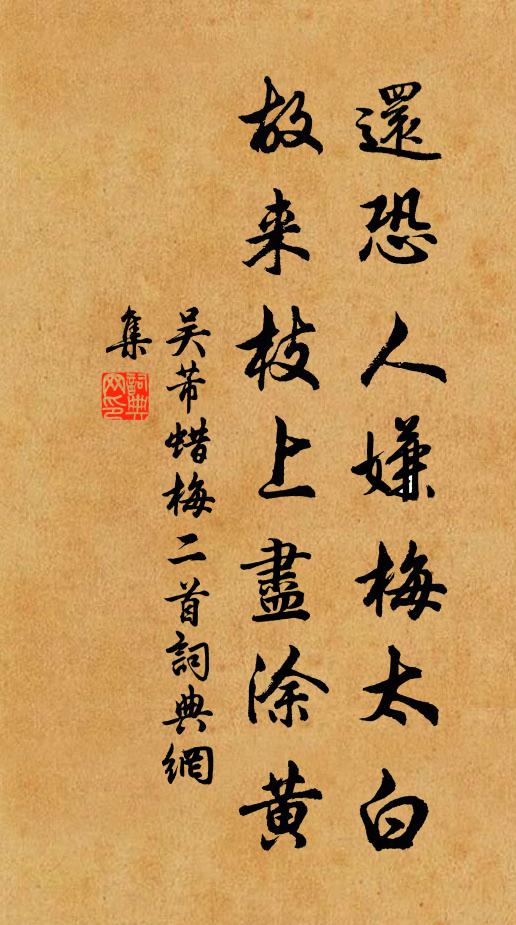 還恐人嫌梅太白
故来枝上盡涂黄
吴芾蜡梅二首詞典網
集
詞典
网印